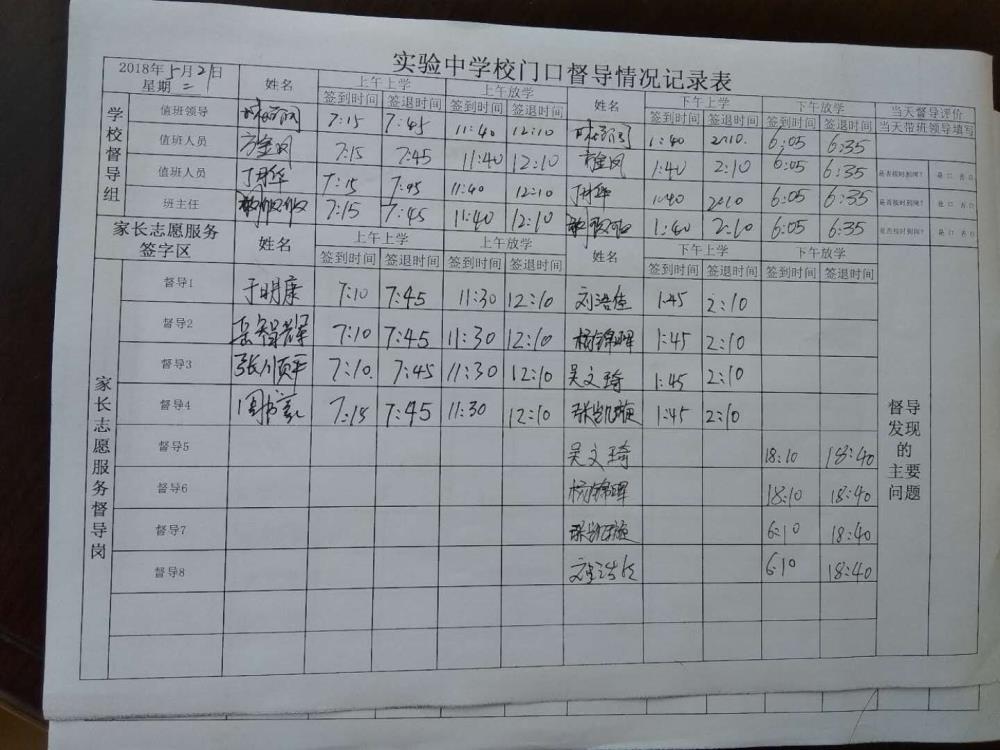 实验中学校门口督导情况记录表
2018年5月21日 星期二 姓名 上午上学 上午放学 姓名 下午上学 下午放学 当天督导评价
签到时间 签退时间 签到时间 签退时间 签到时间 签退时间 签到时间 签退时间 当天带班领导填写
学校督导组
值班领导 7:15 7:45 11:40 12:10 1:40 2:10. 6:05 6:35
值班人员 方金凤 7:15 7:45 11:40 12:10 方金凤 1:40 2:10 6:05 6:35 是否按时到岗? 是 口 否 口
值班人员 7:15 7:45 11:40 12:10 1:40 2:10 6:05 6:35 是否按时到岗? 是 口 否 口
班主任 7:15 7:45 11:40 12:10 1:40 2:10 6:05 6:35 是否按时到岗? 是 口 否 口
家长志愿服务签字区 姓名 上午上学 上午放学 姓名 下午上学 下午放学
签到时间 签退时间 签到时间 签退时间 签到时间 签退时间 签到时间 签退时间
家长志愿服务督导岗
督导1 于明康 7:10 7:45 11:30 12:10 刘浩佳 1:45 2:10
督导2 7:10 7:45 11:30 12:10 杨锦晖 1:45 2:10
督导3 张顺平 7:10. 7:45 11:30 12:10 吴文琦 1:45 2:10
督导4 7:15 7:45 11:30 12:10 张凯旋 1:45 2:10
督导5 吴文琦 18:10 18:40
督导6 杨锦晖 18:10 18:40
督导7 张凯旋 6:10 18:40
督导8 6:10 18:40
督导
发现
的
主要
问题